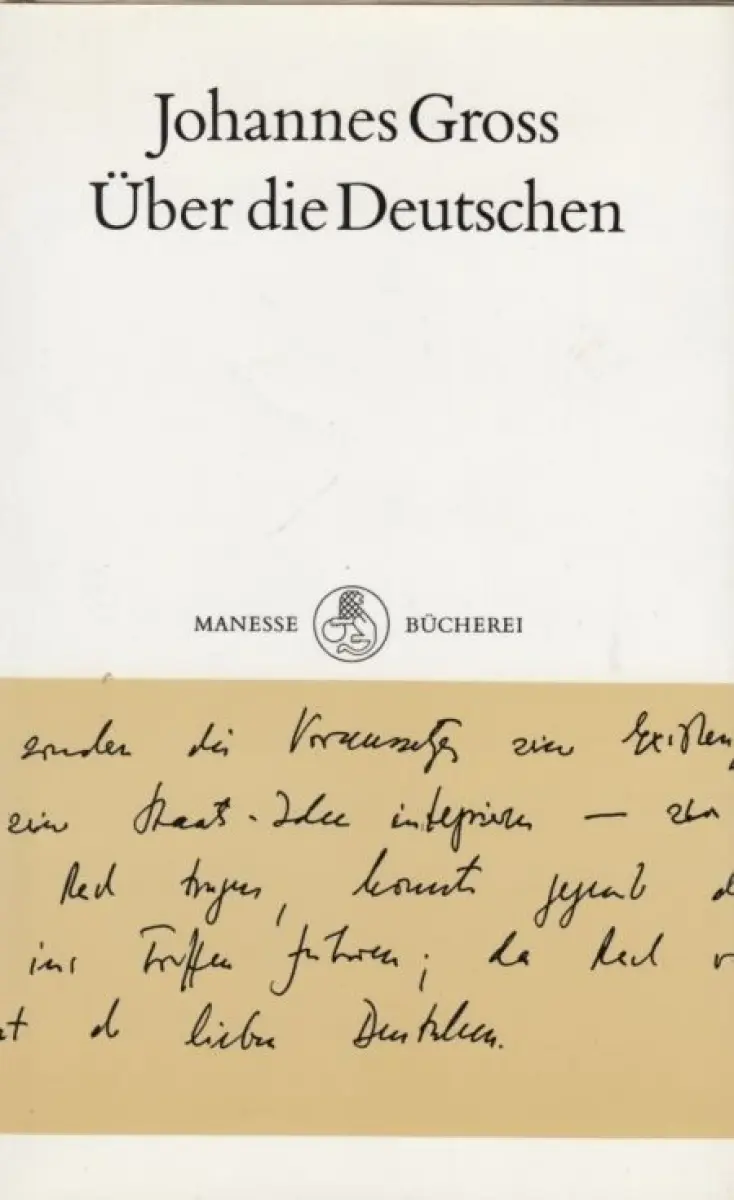 Johannes Gross
Über die Deutschen
MANESSE BÜCHEREI
sondern die Voraussetzg einer Existenz
einer Staats-Idee integrieren —
Red tragen, konnte gegenüb d
ins Treffen führen; da Red v
at d lieben Deutschen.